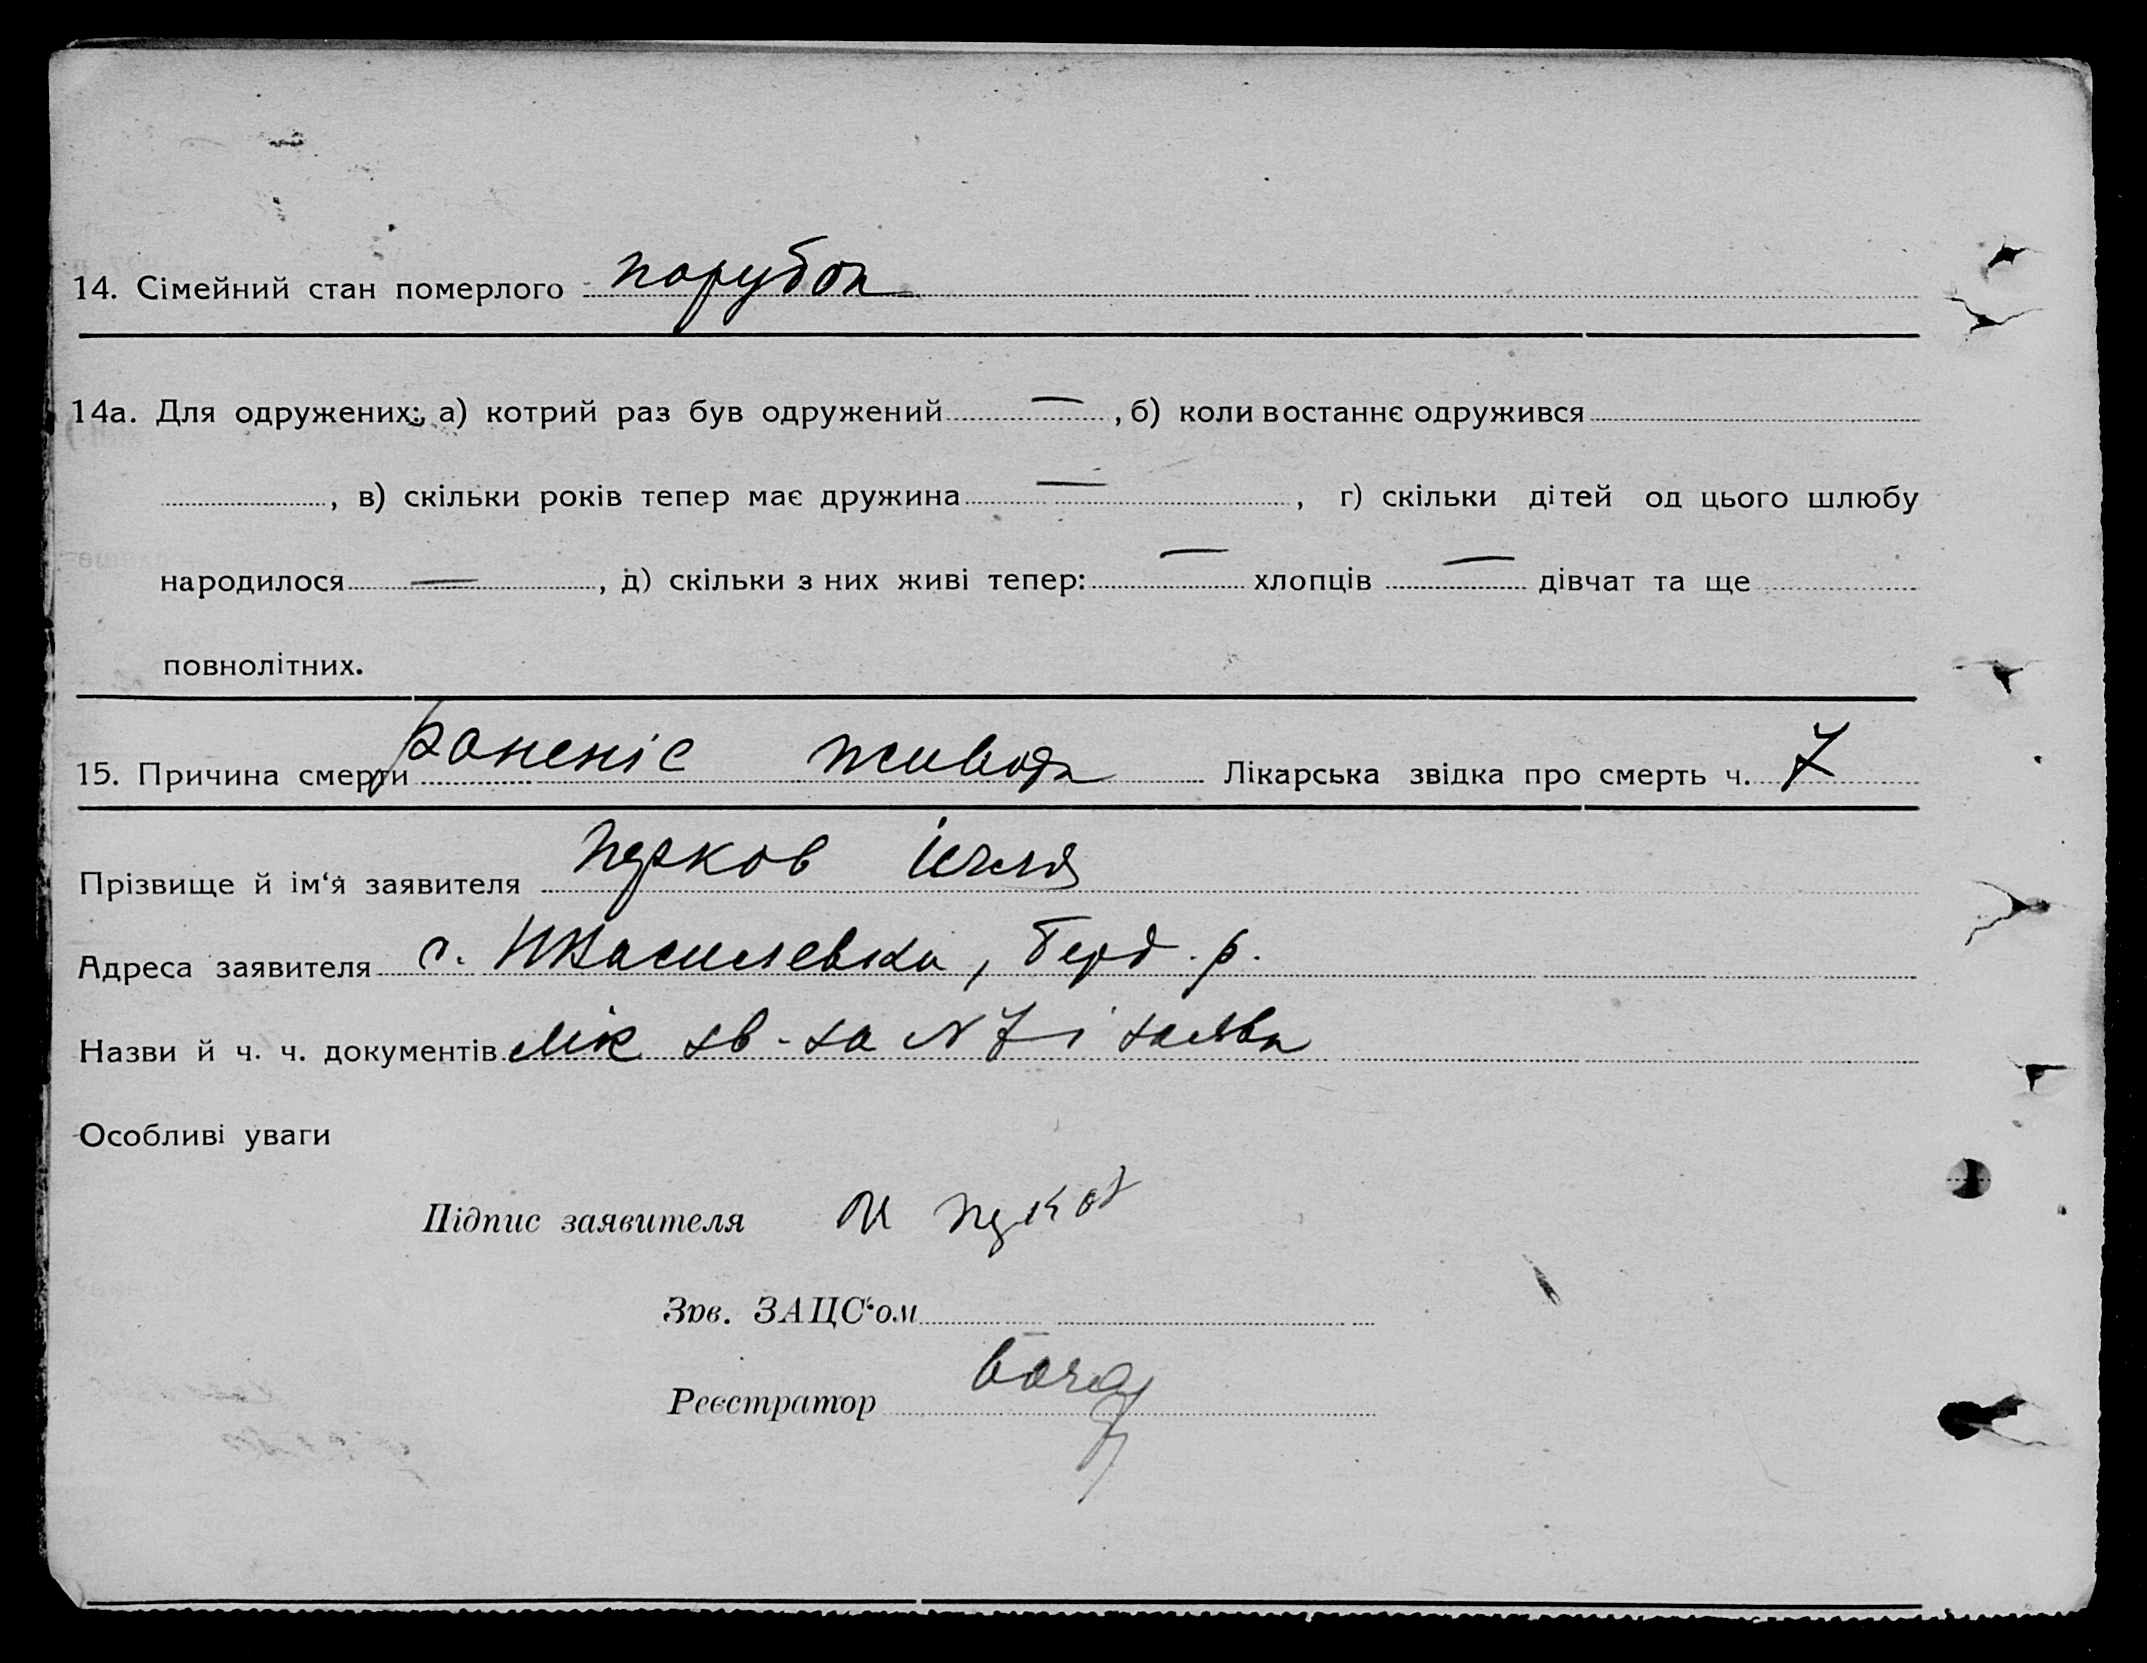 14. Сімейний стан померлого парубок
14а. Для одружених: а) котрий раз був одружений — , б) коли востаннє одружився
, в) скільки років тепер має дружина — , г) скільки дітей од цього шлюбу
народилося — , д) скільки з них живі тепер: — хлопців — дівчат та ще
повнолітних.
15. Причина смерти раненіе живота Лікарська звідка про смерть ч. 7
Прізвище й ім‘я заявителя Ілля
Адреса заявителя с. НВасилевка, Берд. р.
Назви й ч. ч. документів лік зв-ка № 7 і заява
Особливі уваги
Підпис заявителя И
Зав. ЗАЦС‘ом
Реєстратор